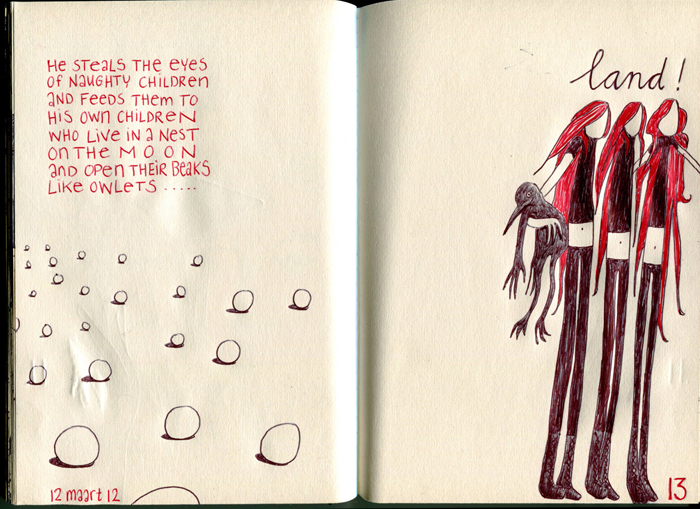 He STEALS THE EYES
OF NAUGHTY CHILDREN
AND FEEDS THEM TO
HIS OWN CHILDREN
WHO LIVE IN A NEST
ON THE MOON
AND OPEN THEIR BEAKS
LIKE OWLETS .....
12 maart 12
land!
13